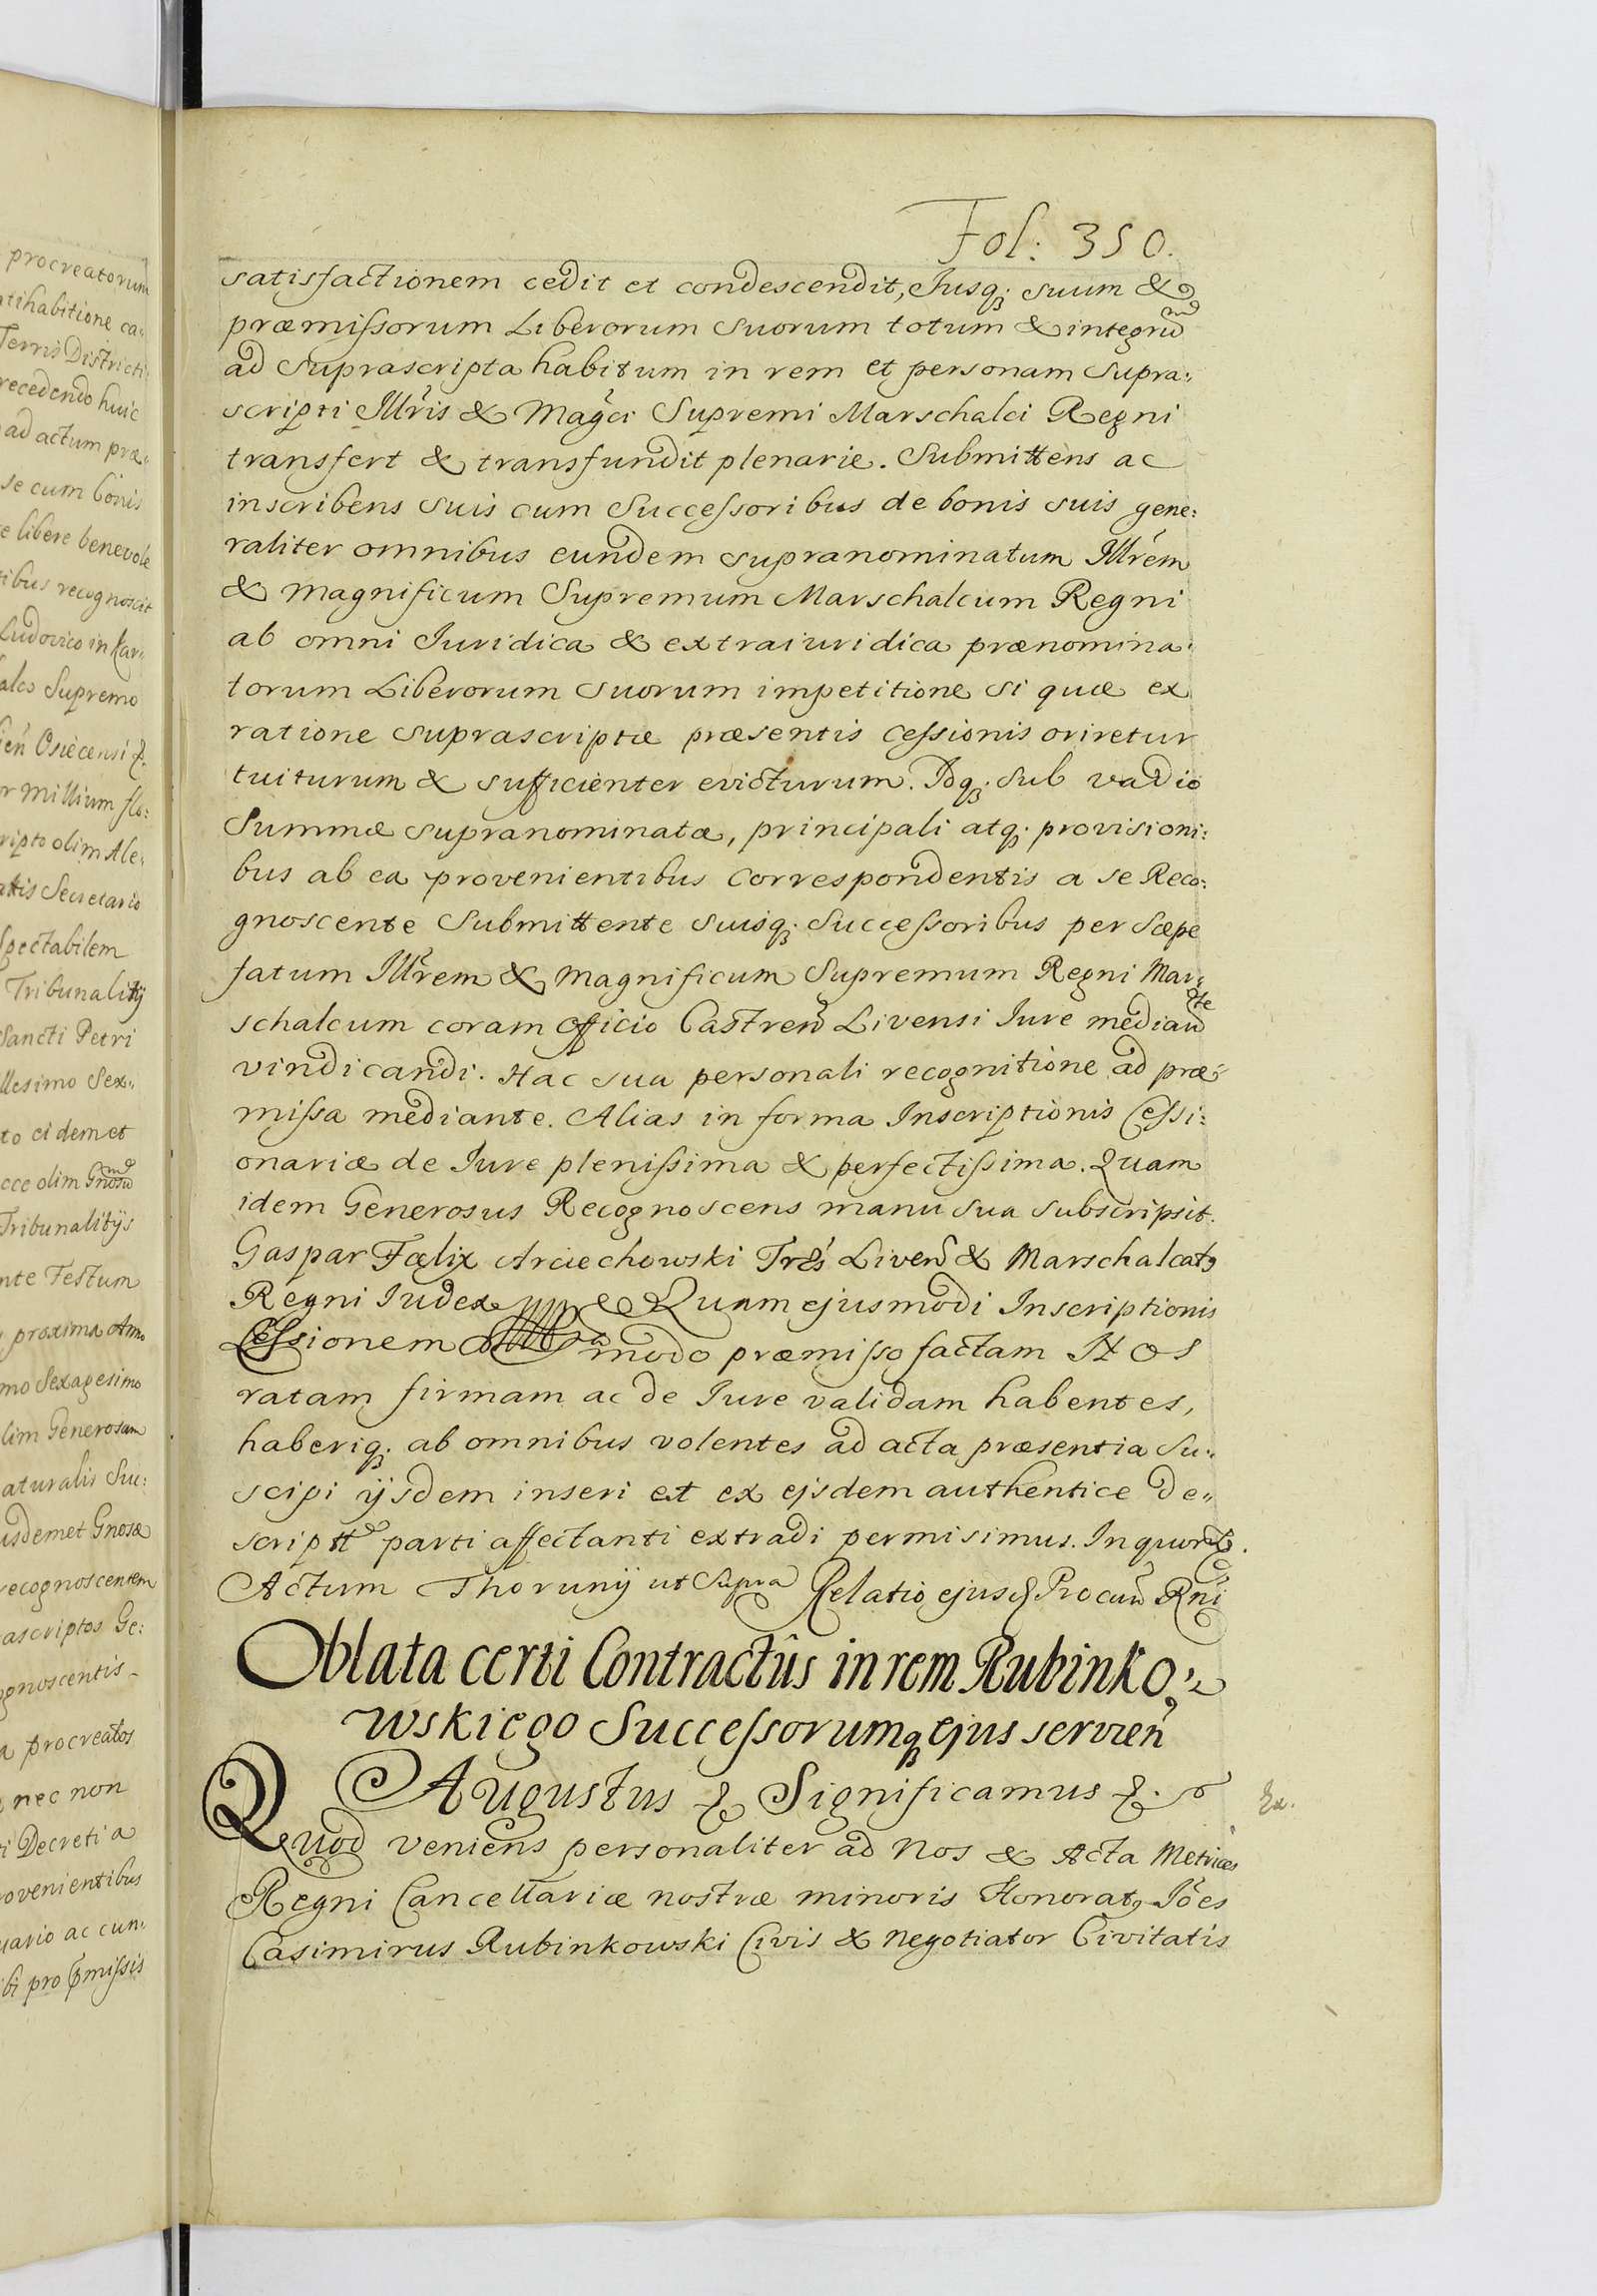 procreatorum
tihabitione ca:
Terris Districti
recedendo huic
ad actum præ:
se cum bonis
e libere benevole
ibus recognoscit
Ludovico in Kar:
alco Supremo
ień Osiecensi &
r Millium flo:
ripto olim Ale:
attis Secretario
Spectabilem
Tribunalitÿ
Sancti Petri
llesimo Sex:
to eidemet
cce olim Gnosū
Tribunalitÿs
nte Festum
proxima Anno
mo Sexagesimo
lim Generosam
aturalis Suc:
usdemet Gnosæ
recognoscentem
ascriptos Ge:
gnoscentis
a procreatos
nec non
i Decreti a
ovenientibus
uario ac cun:
ibi pro pmißis
Fol: 350.
satisfactionem cedit et condescendit, Jusq; suum &
præmißorum Liberorum suorum totum & integrū
ad suprascripta habitum in rem et personam supra:
scripti Illr̃is & Mag̃ci Supremi Marschalci Regni
transfert & transfundit plenarie. Submittens ac
inscribens suis cum Succeßoribus de bonis suis gene:
raliter omnibus eundem supranominatum Illr̃em
& Magnificum Supremum Marschalcum Regni
ab omni Juridica & extraiuridica prænomina:
torum Liberorum suorum impetitione si quæ ex
ratione suprascriptæ præsentis ceßionis oriretur
tuiturum & sufficienter evicturum. Idq; sub vadio
Summæ supranominatæ, principali atq; provisioni:
bus ab ea provenientibus correspondentis a se Reco:
gnoscente Submittente suisq; Succeßoribus per sæpe
fatum Illr̃em & Magnificum Supremum Regni Mar:
schalcum coram Officio Castreñ Livensi Jure mediañte
vindicandi. Hac sua personali recognitione ad præ:
mißa mediante. Alias in forma Inscriptionis Ceßi:
onariæ de Jure plenißima & perfectißima. Quam
idem Generosus Recognoscens manu sua subscripsit.
Gaspar Fælix Arciechowski Trr̃s Liveñ & Marschalcatꝯ
Regni Judex Quam ejusmodi Inscriptionis
Ceßionem modo præmißo factam NOS
ratam firmam ac de Jure validam habentes,
haberiq; ab omnibus volentes ad acta præsentia su:
scipi ÿsdem inseri et ex ejsdem authentice de:
script̃t parti affectanti extradi permisimus. In quorũ &.
Actum Thorunÿ ut supra Relatio ejusd Procuñ Rñi
Oblata certi Contractûs in rem Rubinko:
wskiego Succeßorumq; ejus servień
Augustus & Significamus &.
Quod veniens personaliter ad Nos & Acta Metrices
Ex.
Regni Cancellariæ nostræ minoris Honoratꝯ Jões
Casimirus Rubinkowski Civis & Negotiator Civitatis